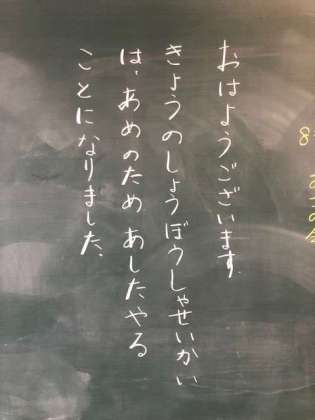 おはようございます。
きょうのしょうぼうしゃせいかい
は、あめのため あしたやる
ことになりました。